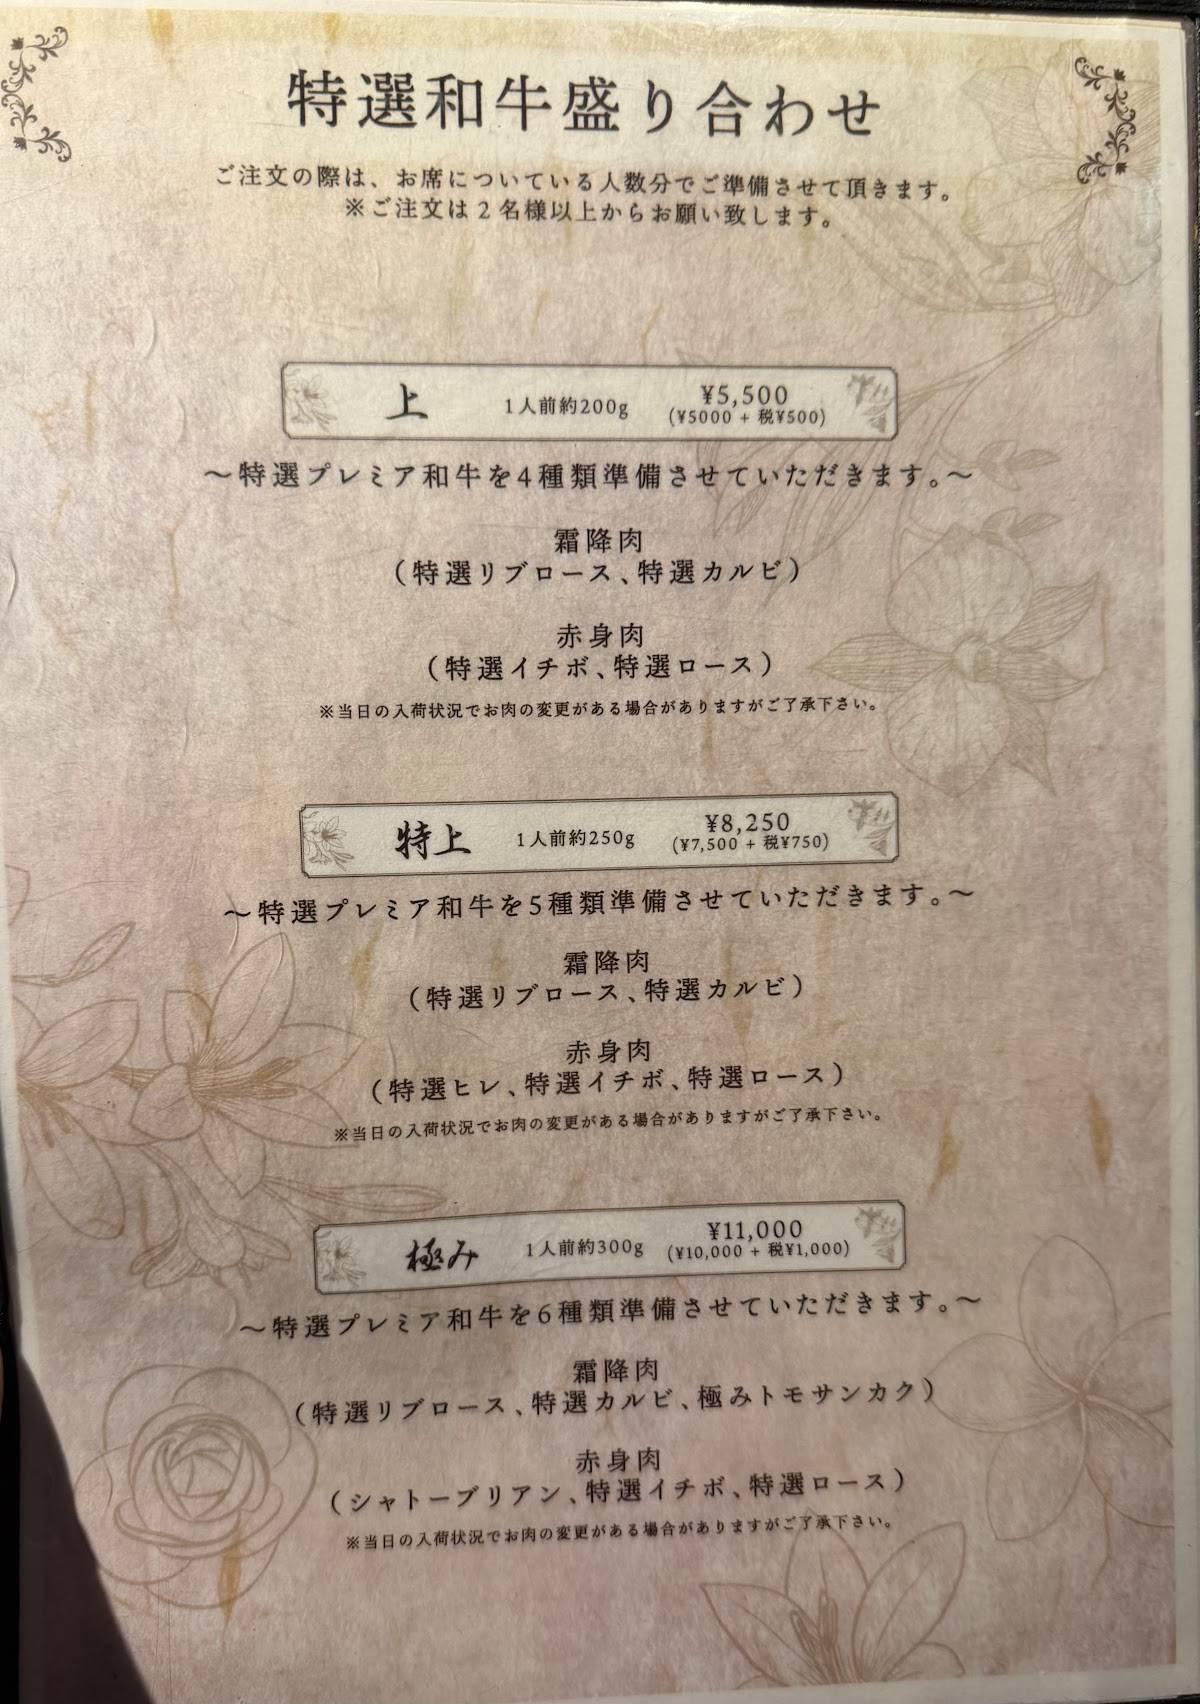 特選和牛盛り合わせ
ご注文の際は、お席についている人数分でご準備させて頂きます。
※ご注文は2名様以上からお願い致します。
上 1人前約200g ¥5,500
(¥5000 + 税¥500)
～特選プレミア和牛を4種類準備させていただきます。～
霜降肉
(特選リブロース、特選カルビ)
赤身肉
(特選イチボ、特選ロース)
※当日の入荷状況でお肉の変更がある場合がありますがご了承下さい。
特上 1人前約250g ¥8,250
(¥7,500 + 税¥750)
～特選プレミア和牛を5種類準備させていただきます。～
霜降肉
(特選リブロース、特選カルビ)
赤身肉
(特選ヒレ、特選イチボ、特選ロース)
※当日の入荷状況でお肉の変更がある場合がありますがご了承下さい。
極み 1人前約300g ¥11,000
(¥10,000 + 税¥1,000)
～特選プレミア和牛を6種類準備させていただきます。～
霜降肉
(特選リブロース、特選カルビ、極みトモサンカク)
赤身肉
(シャトーブリアン、特選イチボ、特選ロース)
※当日の入荷状況でお肉の変更がある場合がありますがご了承下さい。